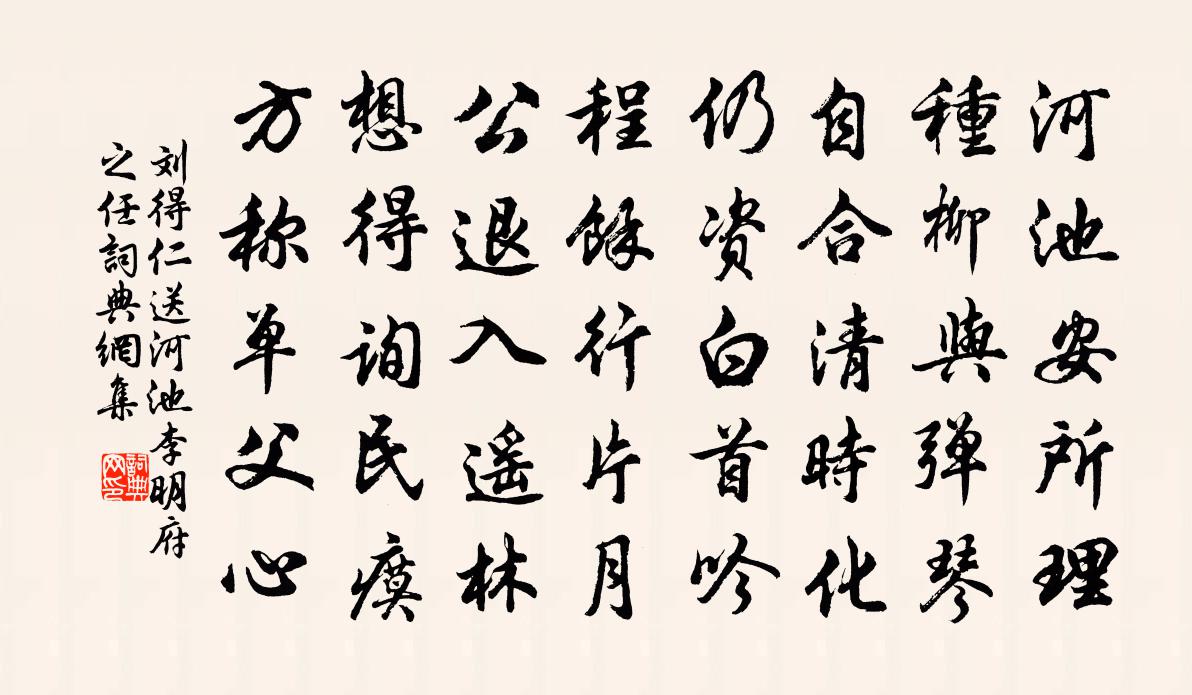 河池安所理
種柳與彈琴
自合清時化
仍资白首吟
程餘行片月
公退入遥林
想得询民瘼
方称单父心
刘得仁送河池李明府
之任詞典網集
詞典
网印